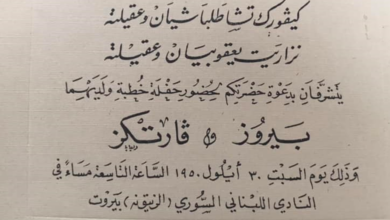 كيڤورك تشاطلباشيان وعقيلته
نزاريت يعقوبيان وعقيلته
يتشرفان بدعوة حضرتكم لحضور حفلة خطبة ولديهما
بيروز و ڤارتكز
وذلك يوم السبت ٣٠ أيلول ١٩٥٠ الساعة التاسعة مساءً في
النادي اللبناني السوري (الزيتونة) بيروت